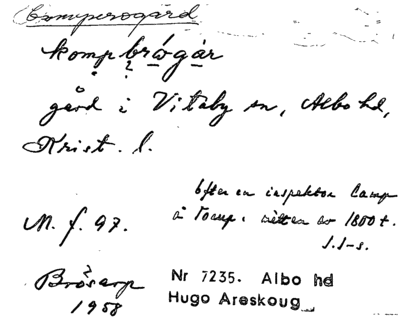 Camperogård
kompbrǿgár
gård i Vitaby sn, Albo hd,
Krist. l.
Efter en inspektor Camp
å Torup i mitten av 1800 t.
M. f. 97.
Brösarp
1958
Nr 7235. Albo hd
Hugo Areskoug